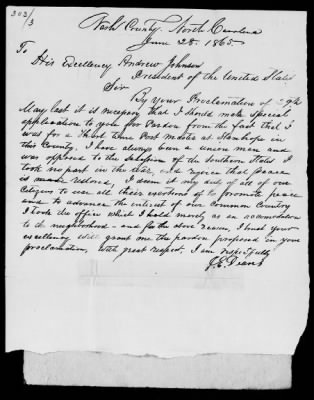 303/3
Nash County, North Carolina
June 28. 1865
To
His Excellency Andrew Johnson
President of the United States
Sir
By your Proclamation of 29th
May last it is necessary that I should make special
application to you for Pardon from the fact that I
was for a Short time Post Master at Stanhope in
this County. I have always been a union man and
was opposed to the Secession of the Southern States I
took no part in the War, and rejoice that peace
is restored, I deem it my duty of all of our
Citizens to use all their exertions to promote peace
and to advance the interest of our Common Country
I took the office which I held merely as an accomodation
to the neighborhood - and for the above reason, I trust your
excellency will grant me the pardon proposed in your
proclamation with great respect, I am respectfully
J. E. Deans